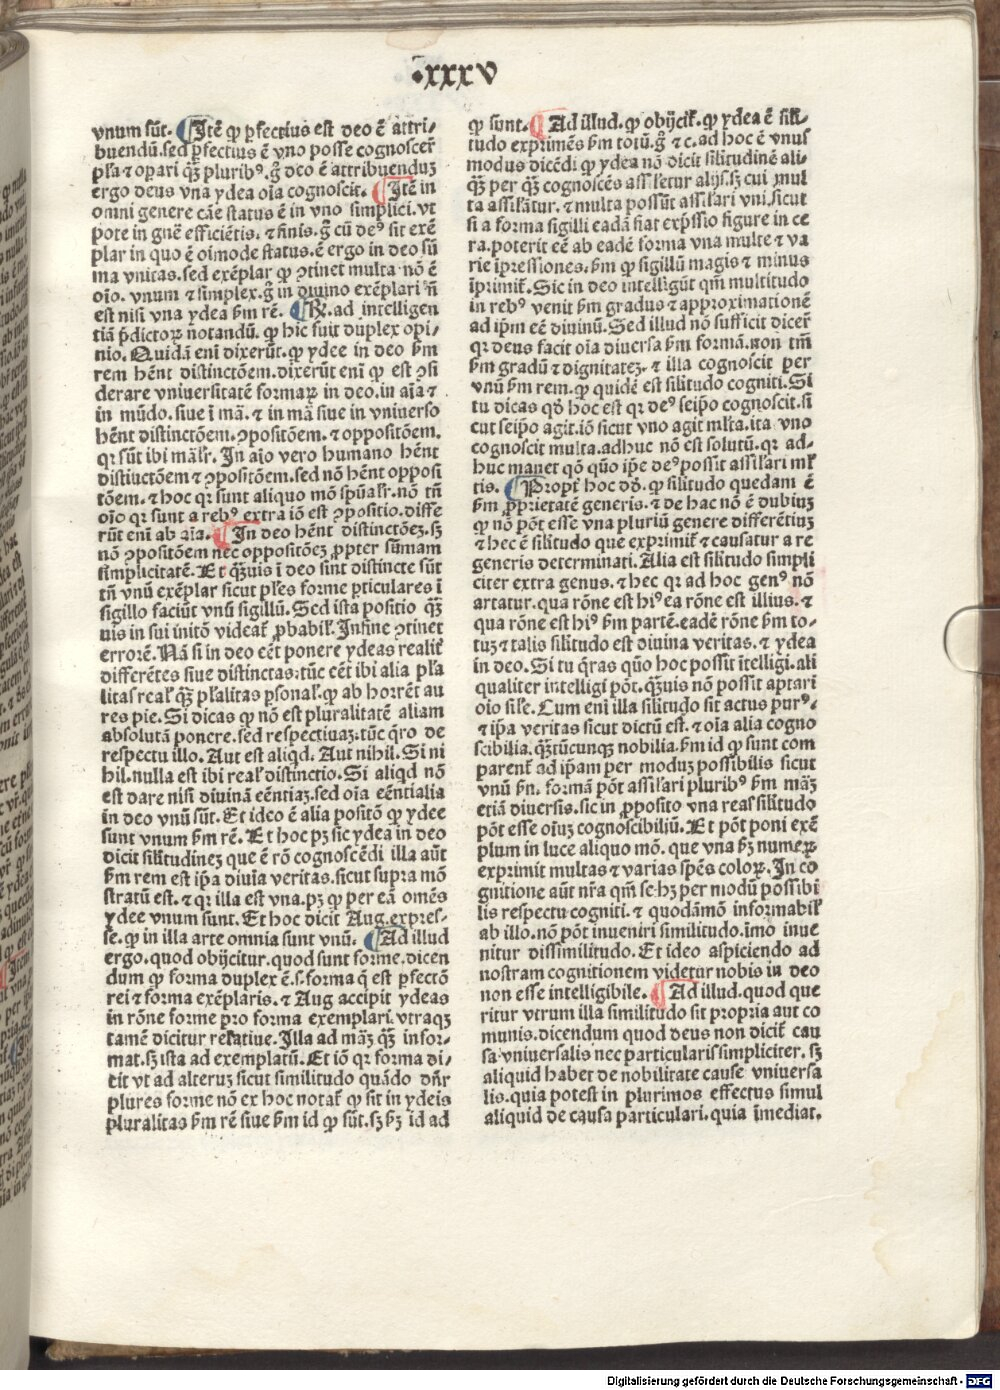 ·xxxv
vnum sūt. Itē ꝙ ꝑfectius est deo ē attri-
buendū.sed ꝑfectius ē vno posse cognoscer̄
pl̄a ⁊ opari qȝ̄ pluribꝰ.g̊ deo ē attribuenduȝ
ergo deus vna ydea oīa cognoscit. Itē in
omni genere cāe status ē in vno simplici.vt
pote in gnē efficiētis.⁊ finis.g̊ cū deꝰ sit exē
plar in quo ē oīmode status.ē ergo in deo sū
ma vnitas.sed exēplar ꝙ ꝯtinet multa nō ē
oīo. vnum ⁊ simplex.g̊ in diuino exēplari n̄
est nisi vna ydea ẜm rē. R̄.ad intelligen
tiā p̄dictoꝝ notandū. ꝙ hic fuit duplex opi/
nio. Quidā enī dixerūt.ꝙ ydee in deo ẜm
rem hēnt distinctōem.dixerūt enī ꝙ est ꝯsi
derare vniuersitatē formaꝝ in deo.in aīa ⁊
in mūdo.siue ī mā.⁊ in mā siue in vniuerso
hēnt distinctōem.ꝯpositōem.⁊ oppositōem.
qꝛ sūt ibi māl̓r. In aīo vero humano hēnt
distinctōem ⁊ ꝯpositōem.sed nō hēnt opposi
tōem.⁊ hoc qꝛ sunt aliquo mō spūal̓r.nō tn̄
oīo qꝛ sunt a rebꝰ extra iō est ꝯpositio.diffe
rūt enī ab aīa. In deo hēnt distinctōeȝ.sȝ
nō ꝯpositōem nec oppositōeȝ ꝓpter sūmam
simplicitatē. Et qȝ̄uis ī deo sint distincte sūt
tn̄ vnū exēplar sicut pl̄es forme ꝑticulares ī
sigillo faciūt vnū sigillū. Sed ista positio qȝ̄
uis in sui initō videat̄ ꝓbabil̓. Infine ꝯtinet
errorē. Nā si in deo eēt ponere ydeas realit̄
differētes siue distinctas:tūc eēt ibi alia pl̄a
litas real̓ qȝ̄ pl̄alitas ꝑsonal̓.ꝙ ab horrēt au
res pie. Si dicas ꝙ nō est pluralitatē aliam
absolutā ponere.sed respectiuaȝ:tūc q̄ro de
respectu illo. Aut est aliqd. Aut nihil. Si ni
hil.nulla est ibi real̓ distinctio. Si aliqd nō
est dare nisi diuinā eēntiaȝ.sed oīa eēntialia
in deo vnū sūt. Et ideo ē alia positō ꝙ ydee
sunt vnum ẜm rē. Et hoc pȝ sic ydea in deo
dicit sil̓itudineȝ que ē rō cognoscēdi illa aūt
ẜm rem est ip̄a diuīa veritas.sicut supra mō
stratū est.⁊ qꝛ illa est vna.pȝ ꝙ per eā omēs
ydee vnum sunt. Et hoc dicit Aug.expres-
se.ꝙ in illa arte omnia sunt vnū. Ad illud
ergo.quod obijcitur.quod sunt forme.dicen
dum ꝙ forma duplex ē.s.forma q̄ est ꝑfectō
rei ⁊ forma exēplaris.⁊ Aug accipit ydeas
in rōne forme pro forma exemplari.vtraqȝ
tamē dicitur relatiue. Illa ad māȝ qȝ̄ infor-
mat.sȝ ista ad exemplatū. Et iō qꝛ forma di/
cit vt ad alteruȝ sicut similitudo quādo dn̄r
plures forme nō ex hoc notat̄ ꝙ sit in ydeis
pluralitas ẜm rē siue ẜm id ꝙ sūt.sȝ ẜȝ id ad
ꝙ sunt. Ad illud.ꝙ obijcit̄.ꝙ ydea ē sil̓i-
tudo exprimēs ẜm totū.g̊ ⁊ c.ad hoc ē vnus
modus dicēdi ꝙ ydea nō dicit sil̓itudinē ali-
qȝ̄ per qȝ̄ cognoscēs assil̓etur alijs.sȝ cui mul
ta assil̓ātur.⁊ multa possūt assil̓ari vni.sicut
si a forma sigilli eadā fiat exp̄ssio figure in ce
ra.poterit eē ab eadē forma vna multe ⁊ va
rie īpressiones.ẜm ꝙ sigillū magis ⁊ minus
īprimit̄. Sic in deo intelligūt qm̄ multitudo
in rebꝰ venit ẜm gradus ⁊ approximationē
ad ip̄m eē diuinū. Sed illud nō sufficit dicer̄
qꝛ deus facit oīa diuersa ẜm formā.non tm̄
ẜm gradū ⁊ dignitateȝ.⁊ illa cognoscit per
vnū ẜm rem.ꝙ quidē est sil̓itudo cogniti. Si
tu dicas qd̓ hoc est qꝛ deꝰ seip̄o cognoscit.si
cut seip̄o agit.iō sicut vno agit ml̓ta.ita vno
cognoscit multa.adhuc nō est solutū.qꝛ ad-
huc manet qō quō ip̄e deꝰ possit assil̓ari ml̓
tis. Propt̄ hoc dō. ꝙ sil̓itudo quedam ē
ẜm ꝓprietatē generis.⁊ de hac nō ē dubiuȝ
ꝙ nō pōt esse vna pluriū genere differētiuȝ
⁊ hec ē sil̓itudo que exprimit̄ ⁊ causatur a re
generis determinati. Alia est sil̓itudo simpli
citer extra genus.⁊ hec qꝛ ad hoc genꝰ nō
artatur.qua rōne est hiꝰ ea rōne est illius.⁊
qua rōne est hiꝰ ẜm partē.eadē rōne ẜm to-
tuȝ ⁊ talis sil̓itudo est diuina veritas.⁊ ydea
in deo. Si tu q̄ras quō hoc possit ītelligi.ali
qualiter intelligi pōt.qȝ̄uis nō possit aptari
oīo sil̓e. Cum enī illa sil̓itudo sit actus purꝰ.
⁊ ip̄a veritas sicut dictū est.⁊ oīa alia cogno
scibilia.qȝ̄tūcunqȝ nobilia.ẜm id ꝙ sunt com
parent̄ ad ip̄am per moduȝ possibilis sicut
vnū ẜn. formā pōt assil̓ari pluribꝰ ẜm māȝ
etiā diuersis.sic in ꝓposito vna real̓ sil̓itudo
pōt esse oīuȝ cognoscibiliū. Et pōt poni exē
plum in luce aliquo mō. que vna ẜȝ numeꝝ
exprimit multas ⁊ varias spēs coloꝝ. In co
gnitione aūt nr̄a qm̄ se hȝ per modū possibi
lis respectu cogniti.⁊ quodāmō informabil̓
ab illo.nō pōt inueniri similitudo.īmo inue
nitur dissimilitudo. Et ideo aspiciendo ad
nostram cognitionem videtur nobis in deo
non esse intelligibile. Ad illud.quod que
ritur vtrum illa similitudo sit propria aut co
munis.dicendum quod deus non dicit̄ cau
sa vniuersalis nec particularis simpliciter. sȝ
aliquid habet de nobilitate cause vniuersa
lis.quia potest in plurimos effectus simul
aliquid de causa particulari.quia īmediat.
Digitalisierung gefördert durch die Deutsche Forschungsgemeinschaft - DFG